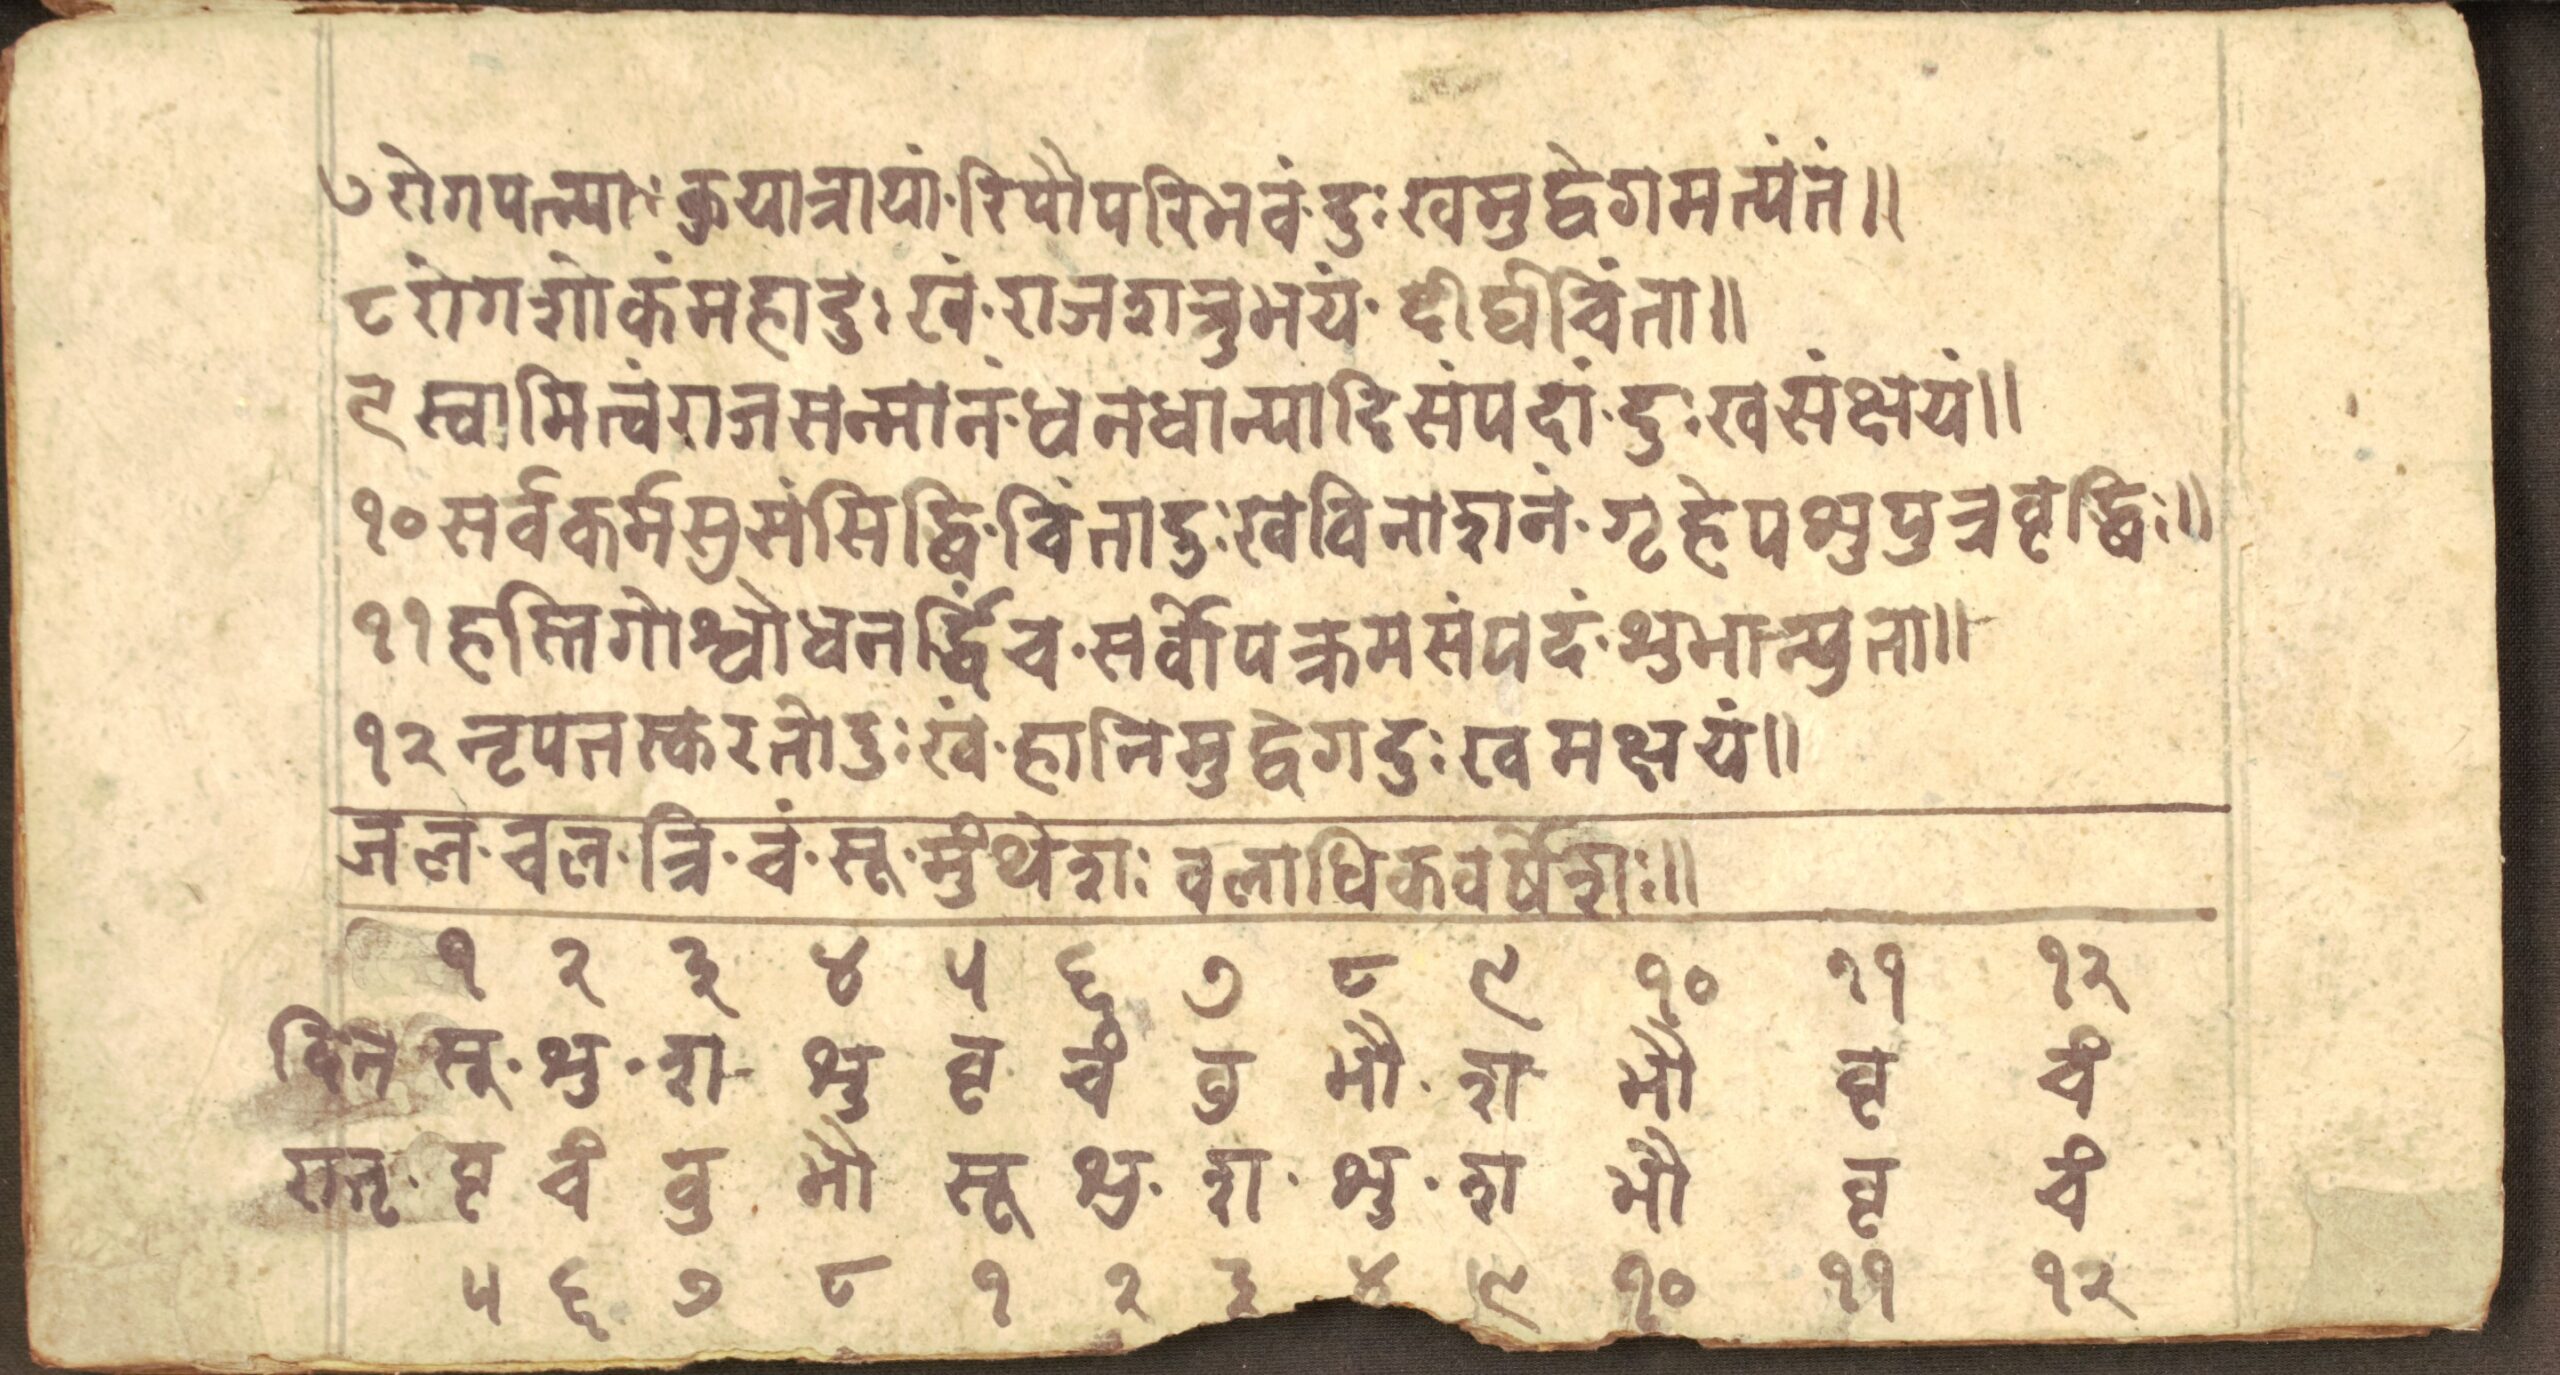 ७ रोगपत्न्याः कुयात्रायां·रिपौपरिभवं·दुःखमुद्वेगमत्यंतं॥
८ रोगशोकंमहादुःखं·राजशत्रुभयं·दीर्घचिंता॥
९ स्वामित्वंराजसन्मानं·धनधान्यादिसंपदां·दुःखसंक्षयं॥
१० सर्वकर्मसुसंसिद्धि·चिंतादुःखविनाशनं·गृहेपशुपुत्रवृद्धिः॥
११ हस्तिगोश्वोधनर्द्धिंच·सर्वोपक्रमसंपदं·शुभान्सुता॥
१२ नृपतस्करतोदुःखं·हानिमुद्वेगदुःखमक्षयं॥
ज·ल·चल·त्रि·चं·सू·मुंथेशः वलाधिकवर्षेशः॥
१ २ ३ ४ ५ ६ ७ ८ ९ १० ११ १२
दिन सू· शु· श शु बृ चं बु भौ· श भौ बृ चं
रातृ· बृ चं बु भौ सू शु· श· शु· श भौ बृ चं
५ ६ ७ ८ १ २ ३ ४ ९ १० ११ १२